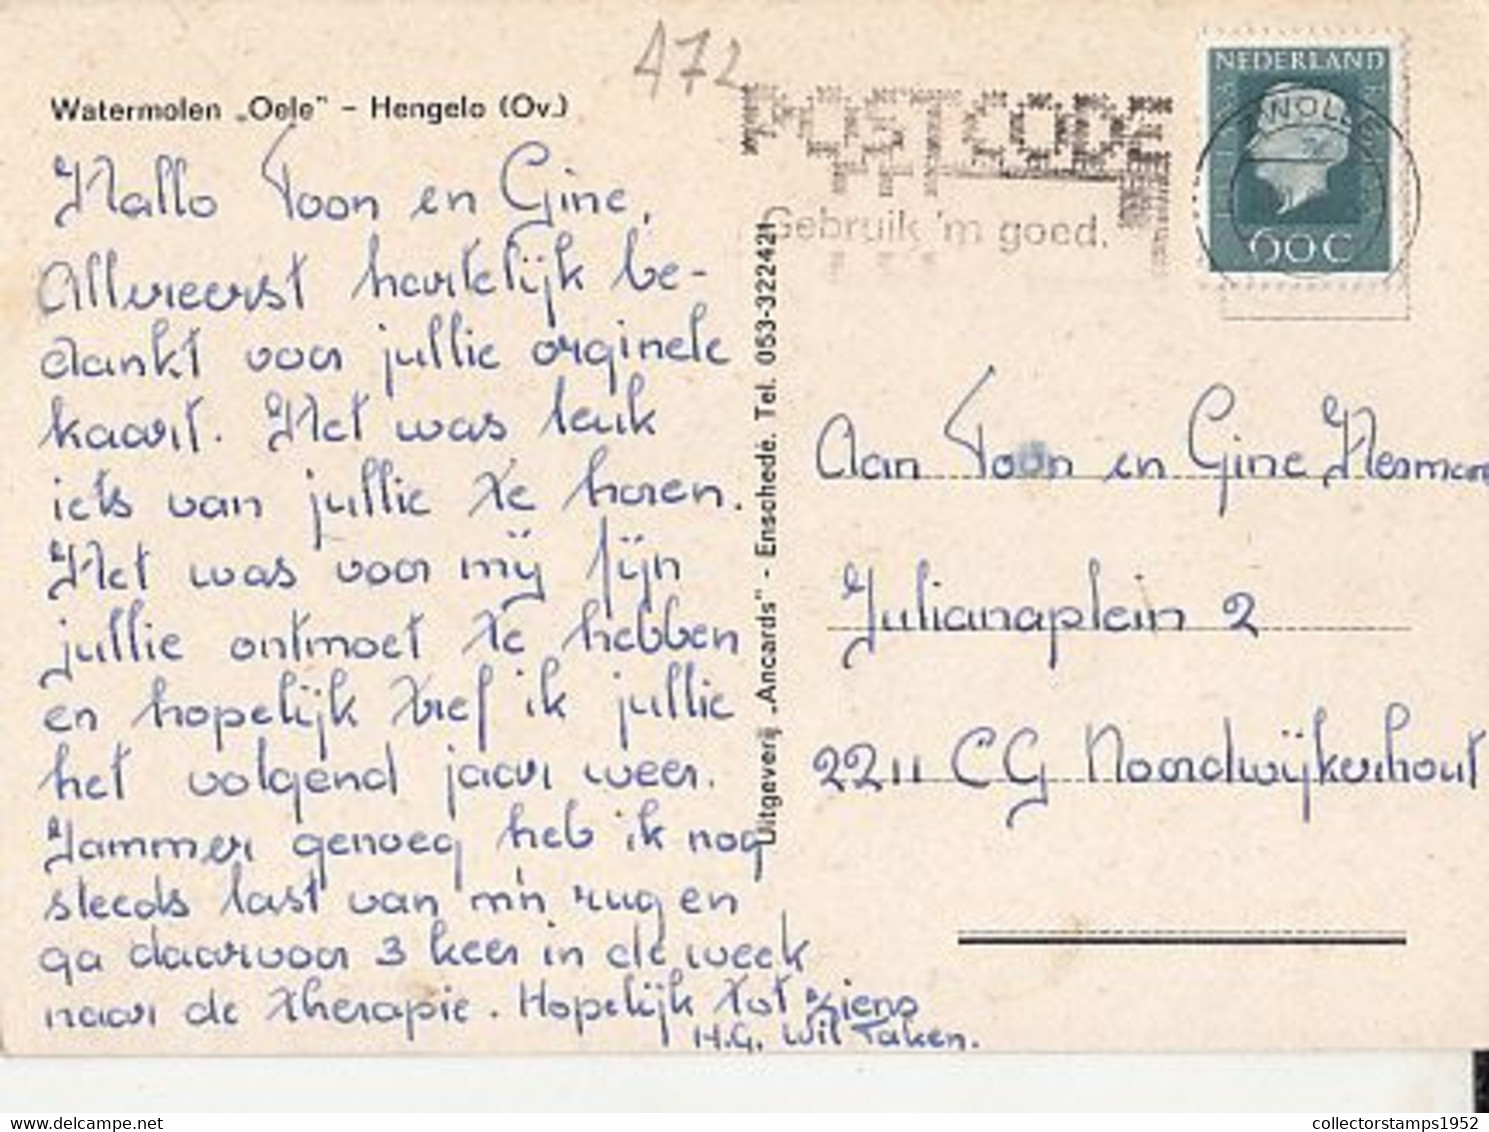 472
Watermolen „Oele" - Hengelo (Ov.)
Hallo Toon en Gine,
Allereerst hartelijk be-
dankt voor jullie orginele
kaart. Het was leuk
iets van jullie te horen.
Het was voor mij fijn
jullie ontmoet te hebben
en hopelijk tref ik jullie
het volgend jaar weer.
Jammer genoeg heb ik nog
steeds last van m'n rug en
ga daarvoor 3 keer in de week
naar de therapie. Hopelijk tot ziens
H.G. Wil Taken.
Uitgeverij „Ancards" - Enschedé. Tel. 053-322421
POSTCODE
Gebruik 'm goed.
NEDERLAND
60C
Aan Toon en Gine
Julianaplein 2
2211 CG Noordwijkerhout
collectorstamps1952